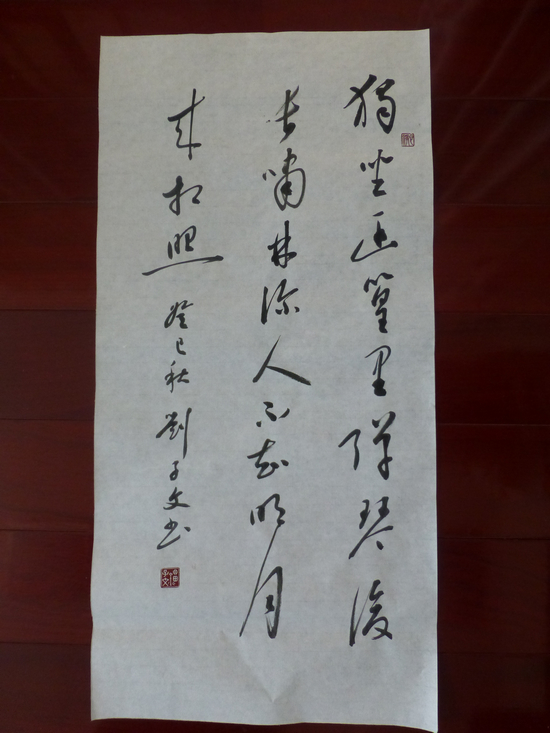 獨坐幽篁里彈琴復
長嘯林深人不知明月
來相照 癸巳秋 劉子文書